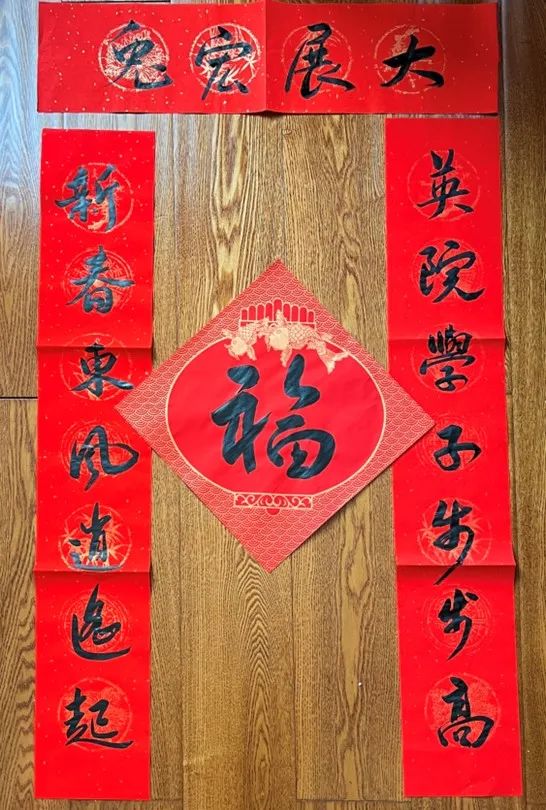 大展宏兔
英院學子步步高
新春東風逍遙起
福